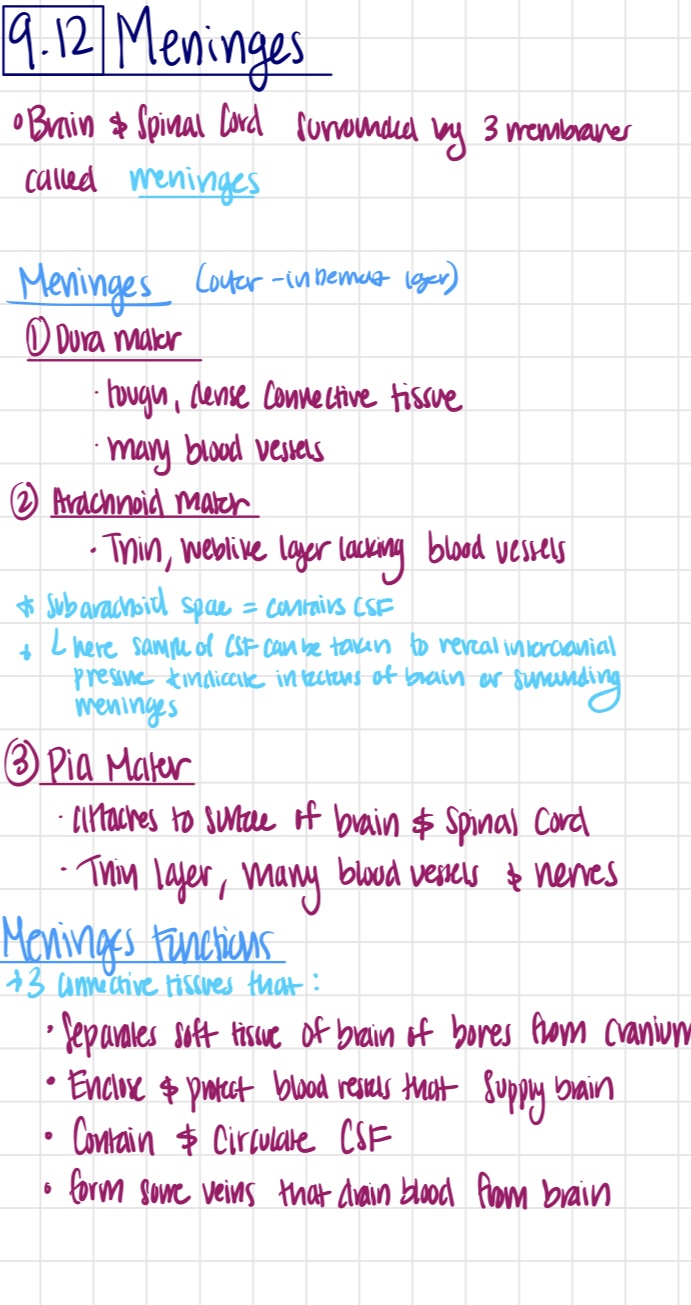 9.12 Meninges
• Brain & Spinal Cord surrounded by 3 membranes
called meninges
Meninges (outer - innermost layer)
① Dura mater
· tough, dense connective tissue
· many blood vessels
② Arachnoid mater
· Thin, weblike layer lacking blood vessels
* Subarachoid space = contains CSF
↳ here sample of CSF can be taken to reveal intercranial
pressure & indicate infections of brain or surrounding
meninges
③ Pia Mater
· attaches to surface of brain & spinal cord
· Thin layer, many blood vessels & nerves
Meninges Functions
→ 3 connective tissues that:
• Separates soft tissue of brain of bones from cranium
• Enclose & protect blood vessels that supply brain
• Contain & circulate CSF
• form some veins that drain blood from brain